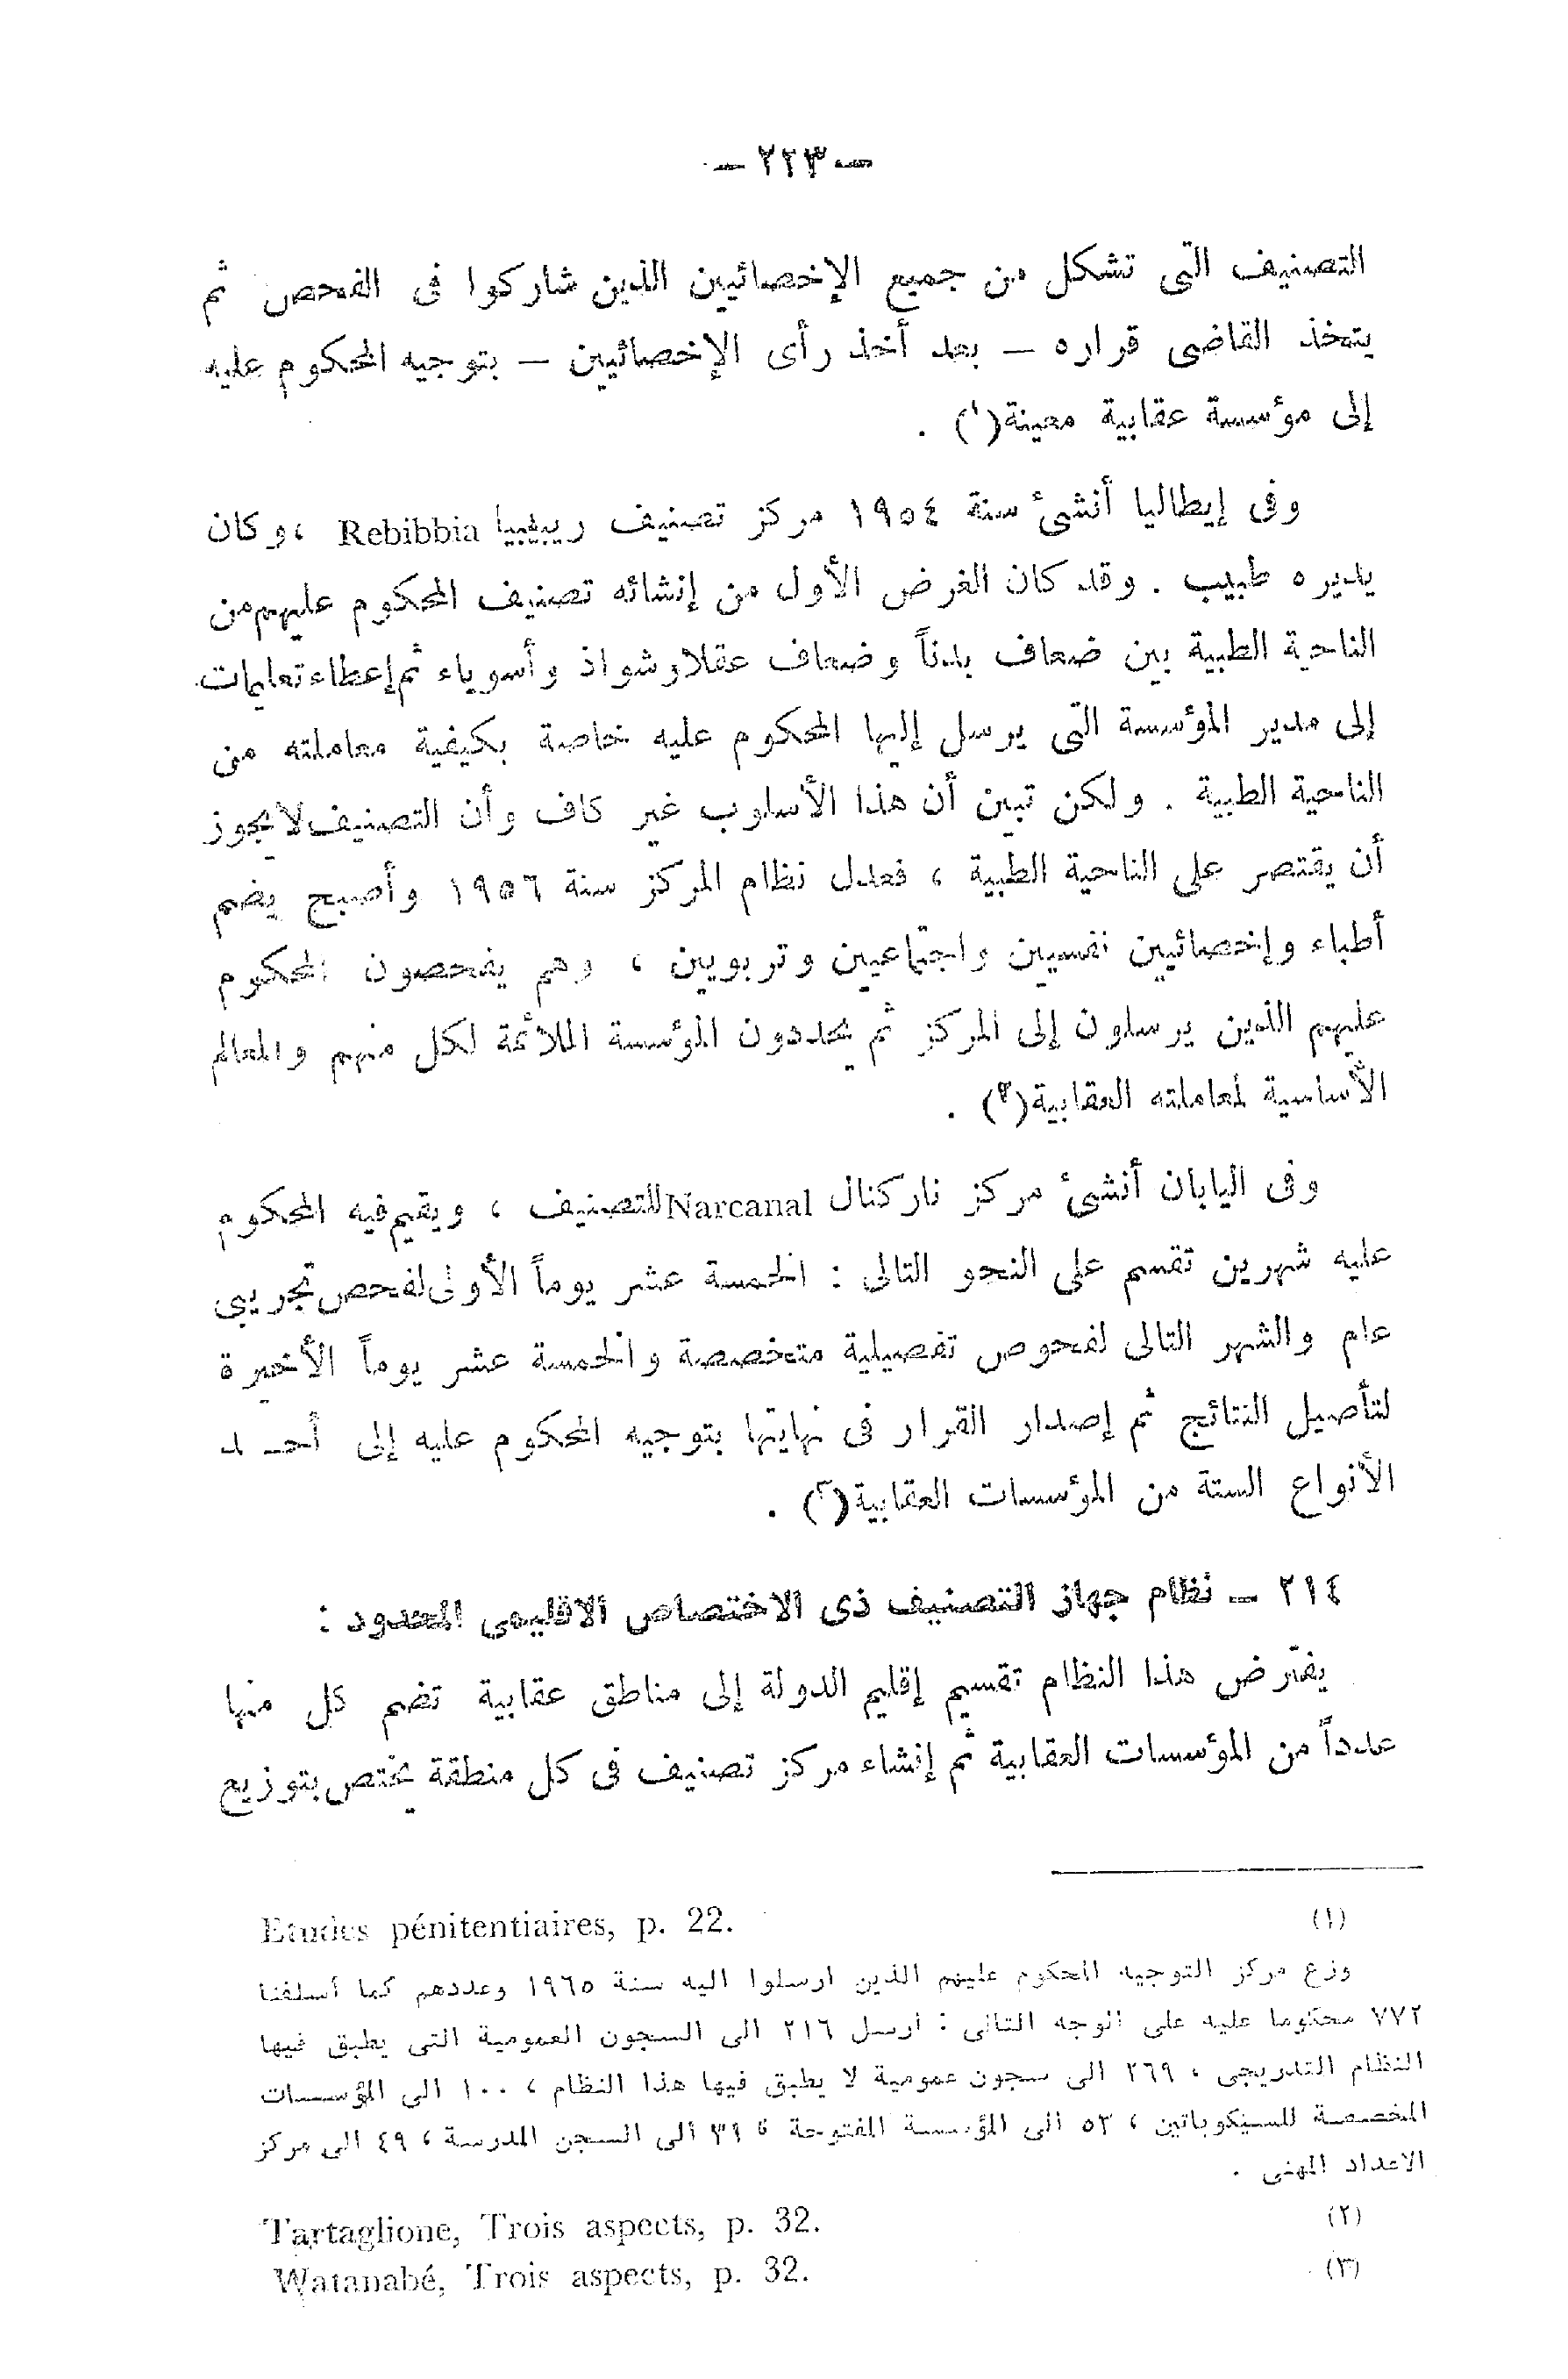 — ٢٢٣ —
التصنيف التى تشكل من جميع الإخصائيين الذين شاركوا فى الفحص ثم
يتخذ القاضى قراره – بعد أخذ رأى الإخصائيين – بتوجيه المحكوم عليه
إلى مؤسسة عقابية معينة(١) .
وفى إيطاليا أنشئ سنة ١٩٥٤ مركز تصنيف ريبيبيا Rebibbia ، وكان
يديره طبيب . وقد كان الغرض الأول من إنشائه تصنيف المحكوم عليهم من
الناحية الطبية بين ضعاف بدناً وضعاف عقلا وشواذ وأسوياء ثم إعطاء تعليمات
إلى مدير المؤسسة التى يرسل إليها المحكوم عليه خاصة بكيفية معاملته من
الناحية الطبية . ولكن تبين أن هذا الأسلوب غير كاف وأن التصنيف لا يجوز
أن يقتصر على الناحية الطبية ، فعدل نظام المركز سنة ١٩٥٦ وأصبح يضم
أطباء وإخصائيين نفسيين واجتماعيين وتربويين ، وهم يفحصون المحكوم
عليهم الذين يرسلون إلى المركز ثم يحددون المؤسسة الملائمة لكل منهم والمعالم
الأساسية لمعاملته العقابية(٢) .
وفى اليابان أنشئ مركز ناركنال Narcanal للتصنيف ، ويقيم فيه المحكوم
عليه شهرين تقسم على النحو التالى : الخمسة عشر يوماً الأولى لفحص تجريبى
عام والشهر التالى لفحوص تفصيلية متخصصة والخمسة عشر يوماً الأخيرة
لتأصيل النتائج ثم إصدار القرار فى نهايتها بتوجيه المحكوم عليه إلى أحد
الأنواع الستة من المؤسسات العقابية(٣) .
٢١٤ – نظام جهاز التصنيف ذى الاختصاص الاقليمى المحدود :
يفترض هذا النظام تقسيم إقليم الدولة إلى مناطق عقابية تضم كل منها
عدداً من المؤسسات العقابية ثم إنشاء مركز تصنيف فى كل منطقة يختص بتوزيع
(١) Etudes pénitentiaires, p. 22.
وزع مركز التوجيه المحكوم عليهم الذين ارسلوا اليه سنة ١٩٦٥ وعددهم كما أسلفنا
٧٧٢ محكوما عليه على الوجه التالى : ارسل ٢١٦ الى السجون العمومية التى يطبق فيها
النظام التدريجى ، ٢٦٩ الى سجون عمومية لا يطبق فيها هذا النظام ، ١٠٠ الى المؤسسات
المخصصة للسيكوباتين ، ٥٣ الى المؤسسة المفتوحة ، ٣٩ الى السجن المدرسة ، ٤٩ الى مركز
الاعداد المهنى .
(٢) Tartaglione, Trois aspects, p. 32.
(٣) Watanabé, Trois aspects, p. 32.